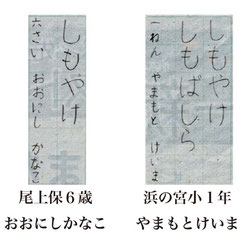 しもやけ
六さい おおにし かなこ
尾上保６歳
おおにしかなこ
しもやけ
しもばしら
一ねん やまもと けいま
浜の宮小１年
やまもとけいま